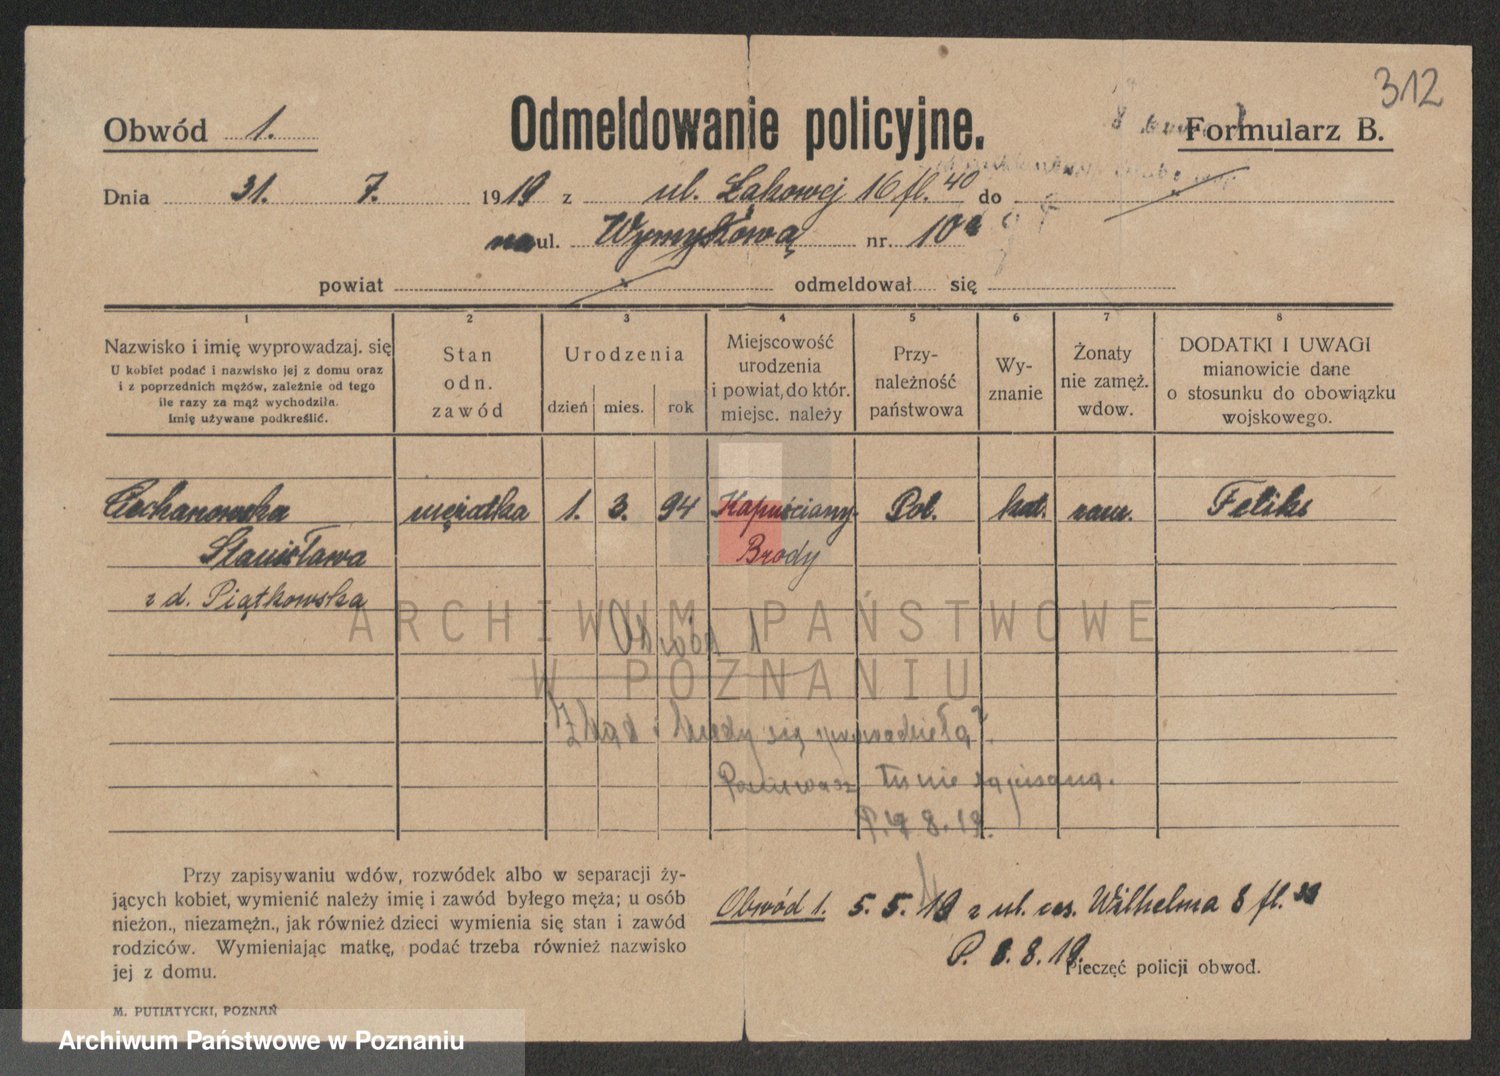 312
Obwód 1.
Odmeldowanie policyjne.
Formularz B.
Dnia 31. 7. 1919 z ul. Łąkowej 16 fl. 40 do
na ul. Wymysłową nr. 10a
powiat odmeldował się
1 2 3 4 5 6 7 8
Nazwisko i imię wyprowadzaj. się
U kobiet podać i nazwisko jej z domu oraz
i z poprzednich mężów, zależnie od tego
ile razy za mąż wychodziła.
Imię używane podkreślić.
Stan
odn.
zawód
Urodzenia
dzień mies. rok
Miejscowość
urodzenia
i powiat, do któr.
miejsc. należy
Przy-
należność
państwowa
Wy-
znanie
Żonaty
nie zamęż.
wdow.
DODATKI I UWAGI
mianowicie dane
o stosunku do obowiązku
wojskowego.
Ciechanowska mężatka 1. 3. 94 Kapuściany Pol. kat. zam. Feliks
Stanisława Brody
z d. Piątkowska
ARCHIWUM PAŃSTWOWE
Obwód 1
W POZNANIU
Zkąd i kiedy się sprowadziła?
Ponieważ tu nie zapisana.
P. 8. 19.
Przy zapisywaniu wdów, rozwódek albo w separacji ży-
jących kobiet, wymienić należy imię i zawód byłego męża; u osób
nieżon., niezamężn., jak również dzieci wymienia się stan i zawód
rodziców. Wymieniając matkę, podać trzeba również nazwisko
jej z domu.
Obwód 1. 5. 5. 19 z ul. ces. Wilhelma 8 fl.
P. 8. 8. 19.
Pieczęć policji obwod.
M. PUTIATYCKI, POZNAŃ
Archiwum Państwowe w Poznaniu